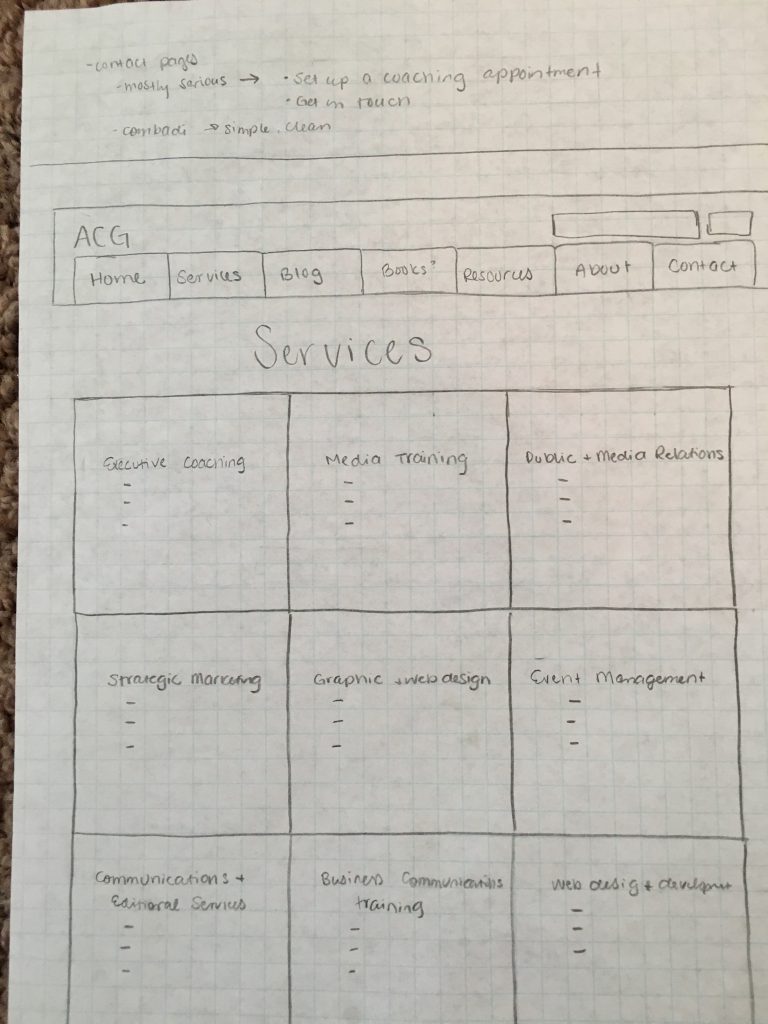 -contact pages
-mostly serious → • Set up a coaching appointment
• Get in touch
-combadi → simple, clean
ACG
Home Services Blog Books? Resources About Contact
Services
Executive Coaching Media Training Public + Media Relations
- - -
- - -
- - -
Strategic Marketing Graphic + web design Event Management
- - -
- - -
- - -
Communications + Business Communications web desig + develpmt
Editioral Services training
- - -
- - -
- - -